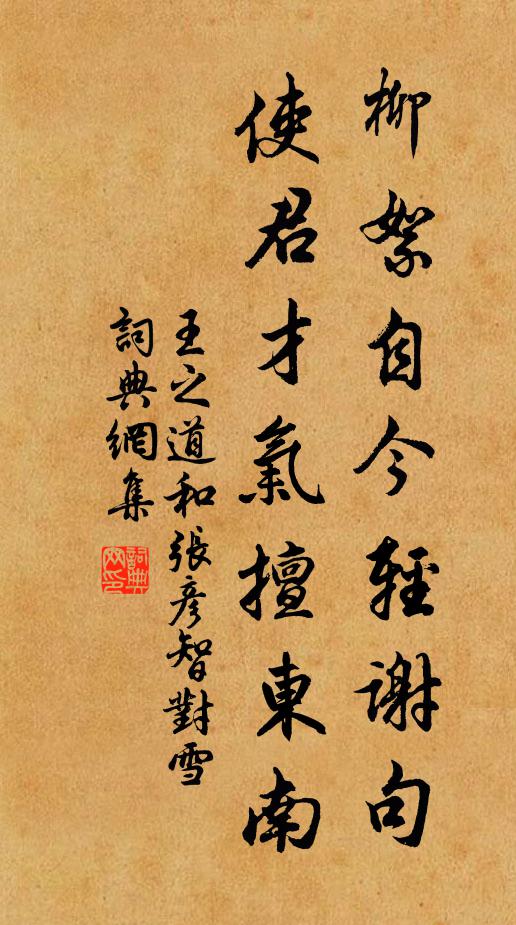 柳絮自今輕謝句
使君才氣擅東南
王之道和張彥智對雪
詞典網集
詞典網印